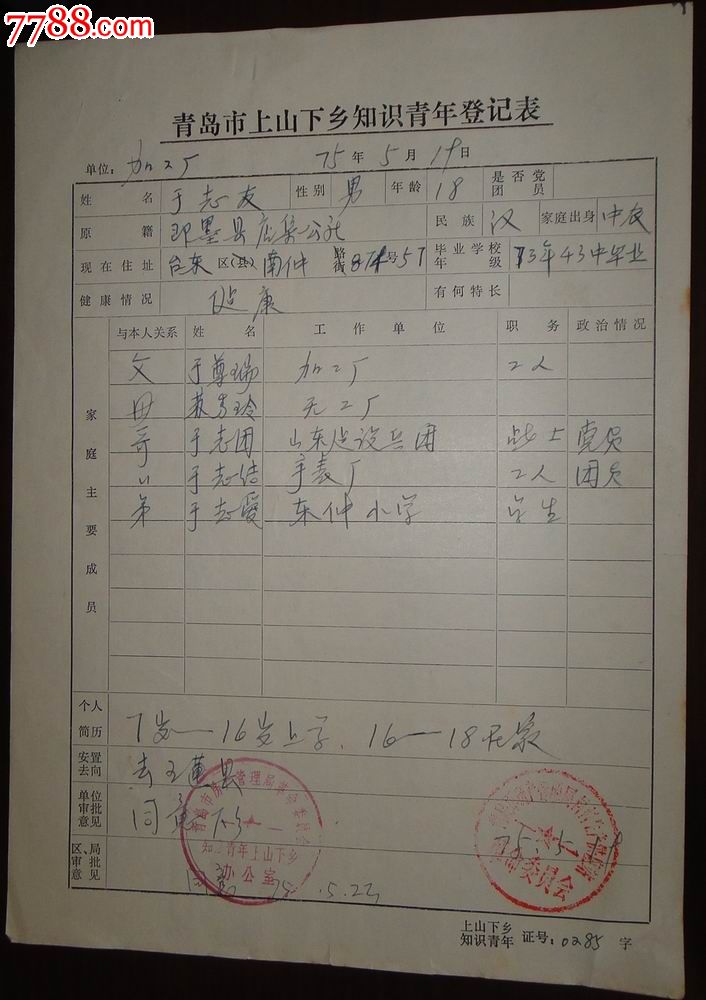 7788.com
青岛市上山下乡知识青年登记表
单位: 加工厂 75年5月19日
姓名 于志友 性别 男 年龄 18 是否党团员
原籍 即墨县店集公社 民族 汉 家庭出身 中农
现在住址 台东区(县) 南仲路街 号57 毕业学校年级 73年43中毕业
健康情况 健康 有何特长
家庭主要成员
与本人关系 姓名 工作单位 职务 政治情况
父 于尊瑞 加工厂 工人
母 工厂
哥 于志团 山东建设兵团 战士 党员
〃 于志结 手表厂 工人 团员
弟 于志爱 东仲小学 学生
个人简历 7岁—16岁上学、16—18在家
安置去向 去 县
单位审批意见 同意下乡 75.5.19
青岛市 管理局革命委员会
知识青年上山下乡
办公室
委员会
区、局审批意见 同意 75.5.22
上山下乡知识青年 证号: 0285 字